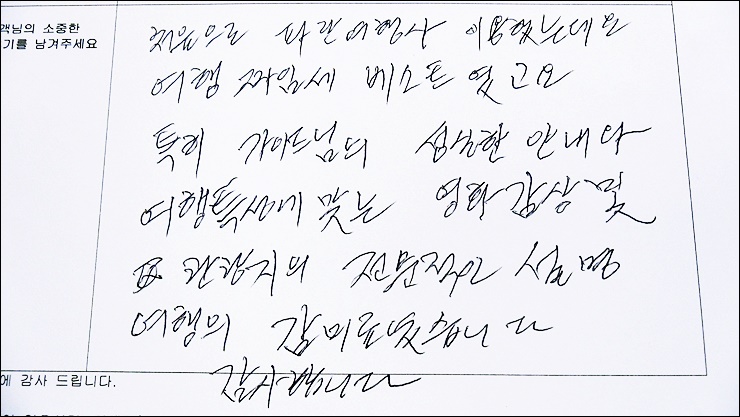 객님의 소중한
기를 남겨주세요
처음으로 파란여행사 이용했는데요
여행 짜임세 베스트 였고요
특히 가이드님의 성실한 안내와
여행특성에 맞는 영화감상 및
관광지의 전문적인 설명
여행의 감미료였습니다
감사합니다
에 감사 드립니다.